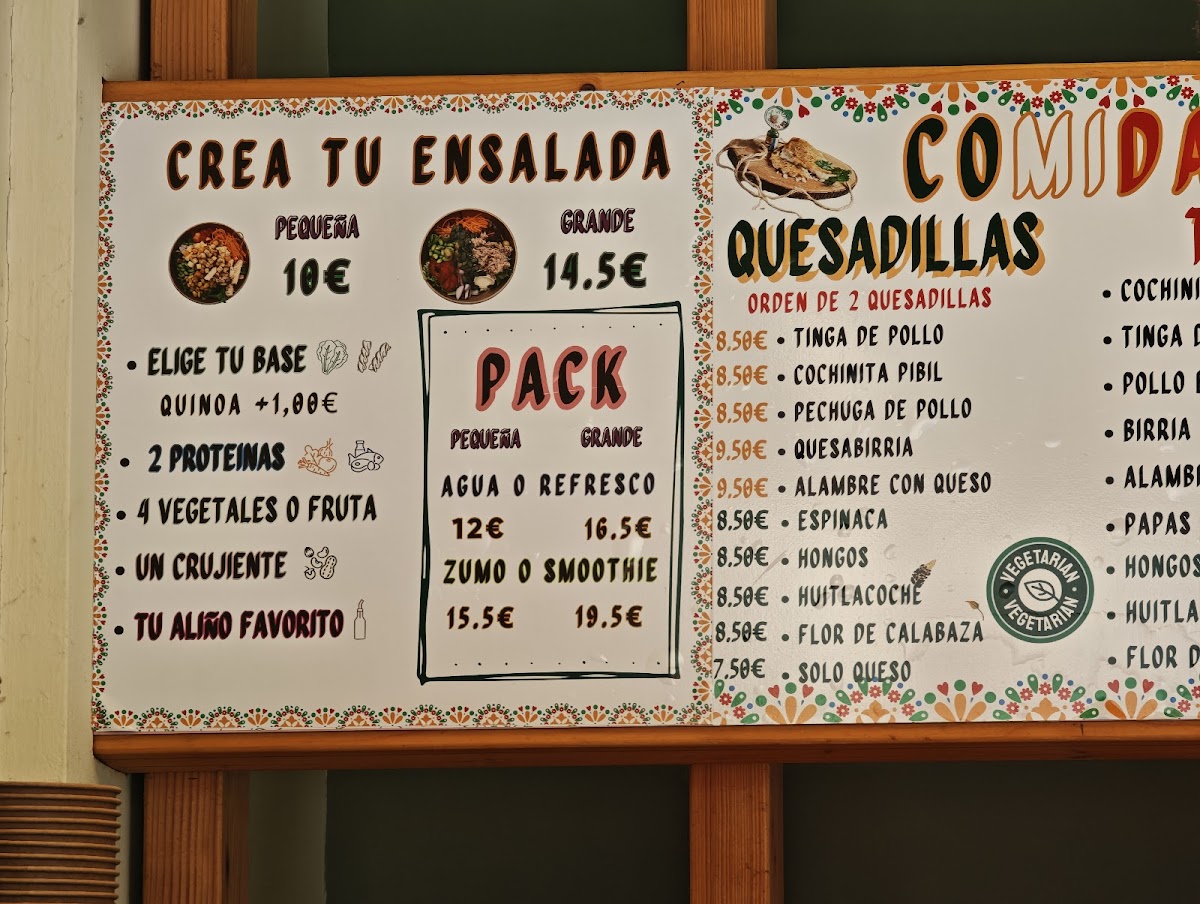 CREA TU ENSALADA
PEQUEÑA
10€
GRANDE
14.5€
• ELIGE TU BASE
QUINOA +1,00€
• 2 PROTEINAS
• 4 VEGETALES O FRUTA
• UN CRUJIENTE
• TU ALIÑO FAVORITO
PACK
PEQUEÑA GRANDE
AGUA O REFRESCO
12€ 16.5€
ZUMO O SMOOTHIE
15.5€ 19.5€
COMIDA
QUESADILLAS
ORDEN DE 2 QUESADILLAS
8.50€ • TINGA DE POLLO
8.50€ • COCHINITA PIBIL
8.50€ • PECHUGA DE POLLO
9.50€ • QUESABIRRIA
9.50€ • ALAMBRE CON QUESO
8.50€ • ESPINACA
8.50€ • HONGOS
8.50€ • HUITLACOCHE
8.50€ • FLOR DE CALABAZA
7.50€ • SOLO QUESO
VEGETARIAN
VEGETARIAN
• COCHINI
• TINGA
• POLLO
• BIRRIA
• ALAMB
• PAPAS
• HONGOS
• HUITLA
• FLOR D